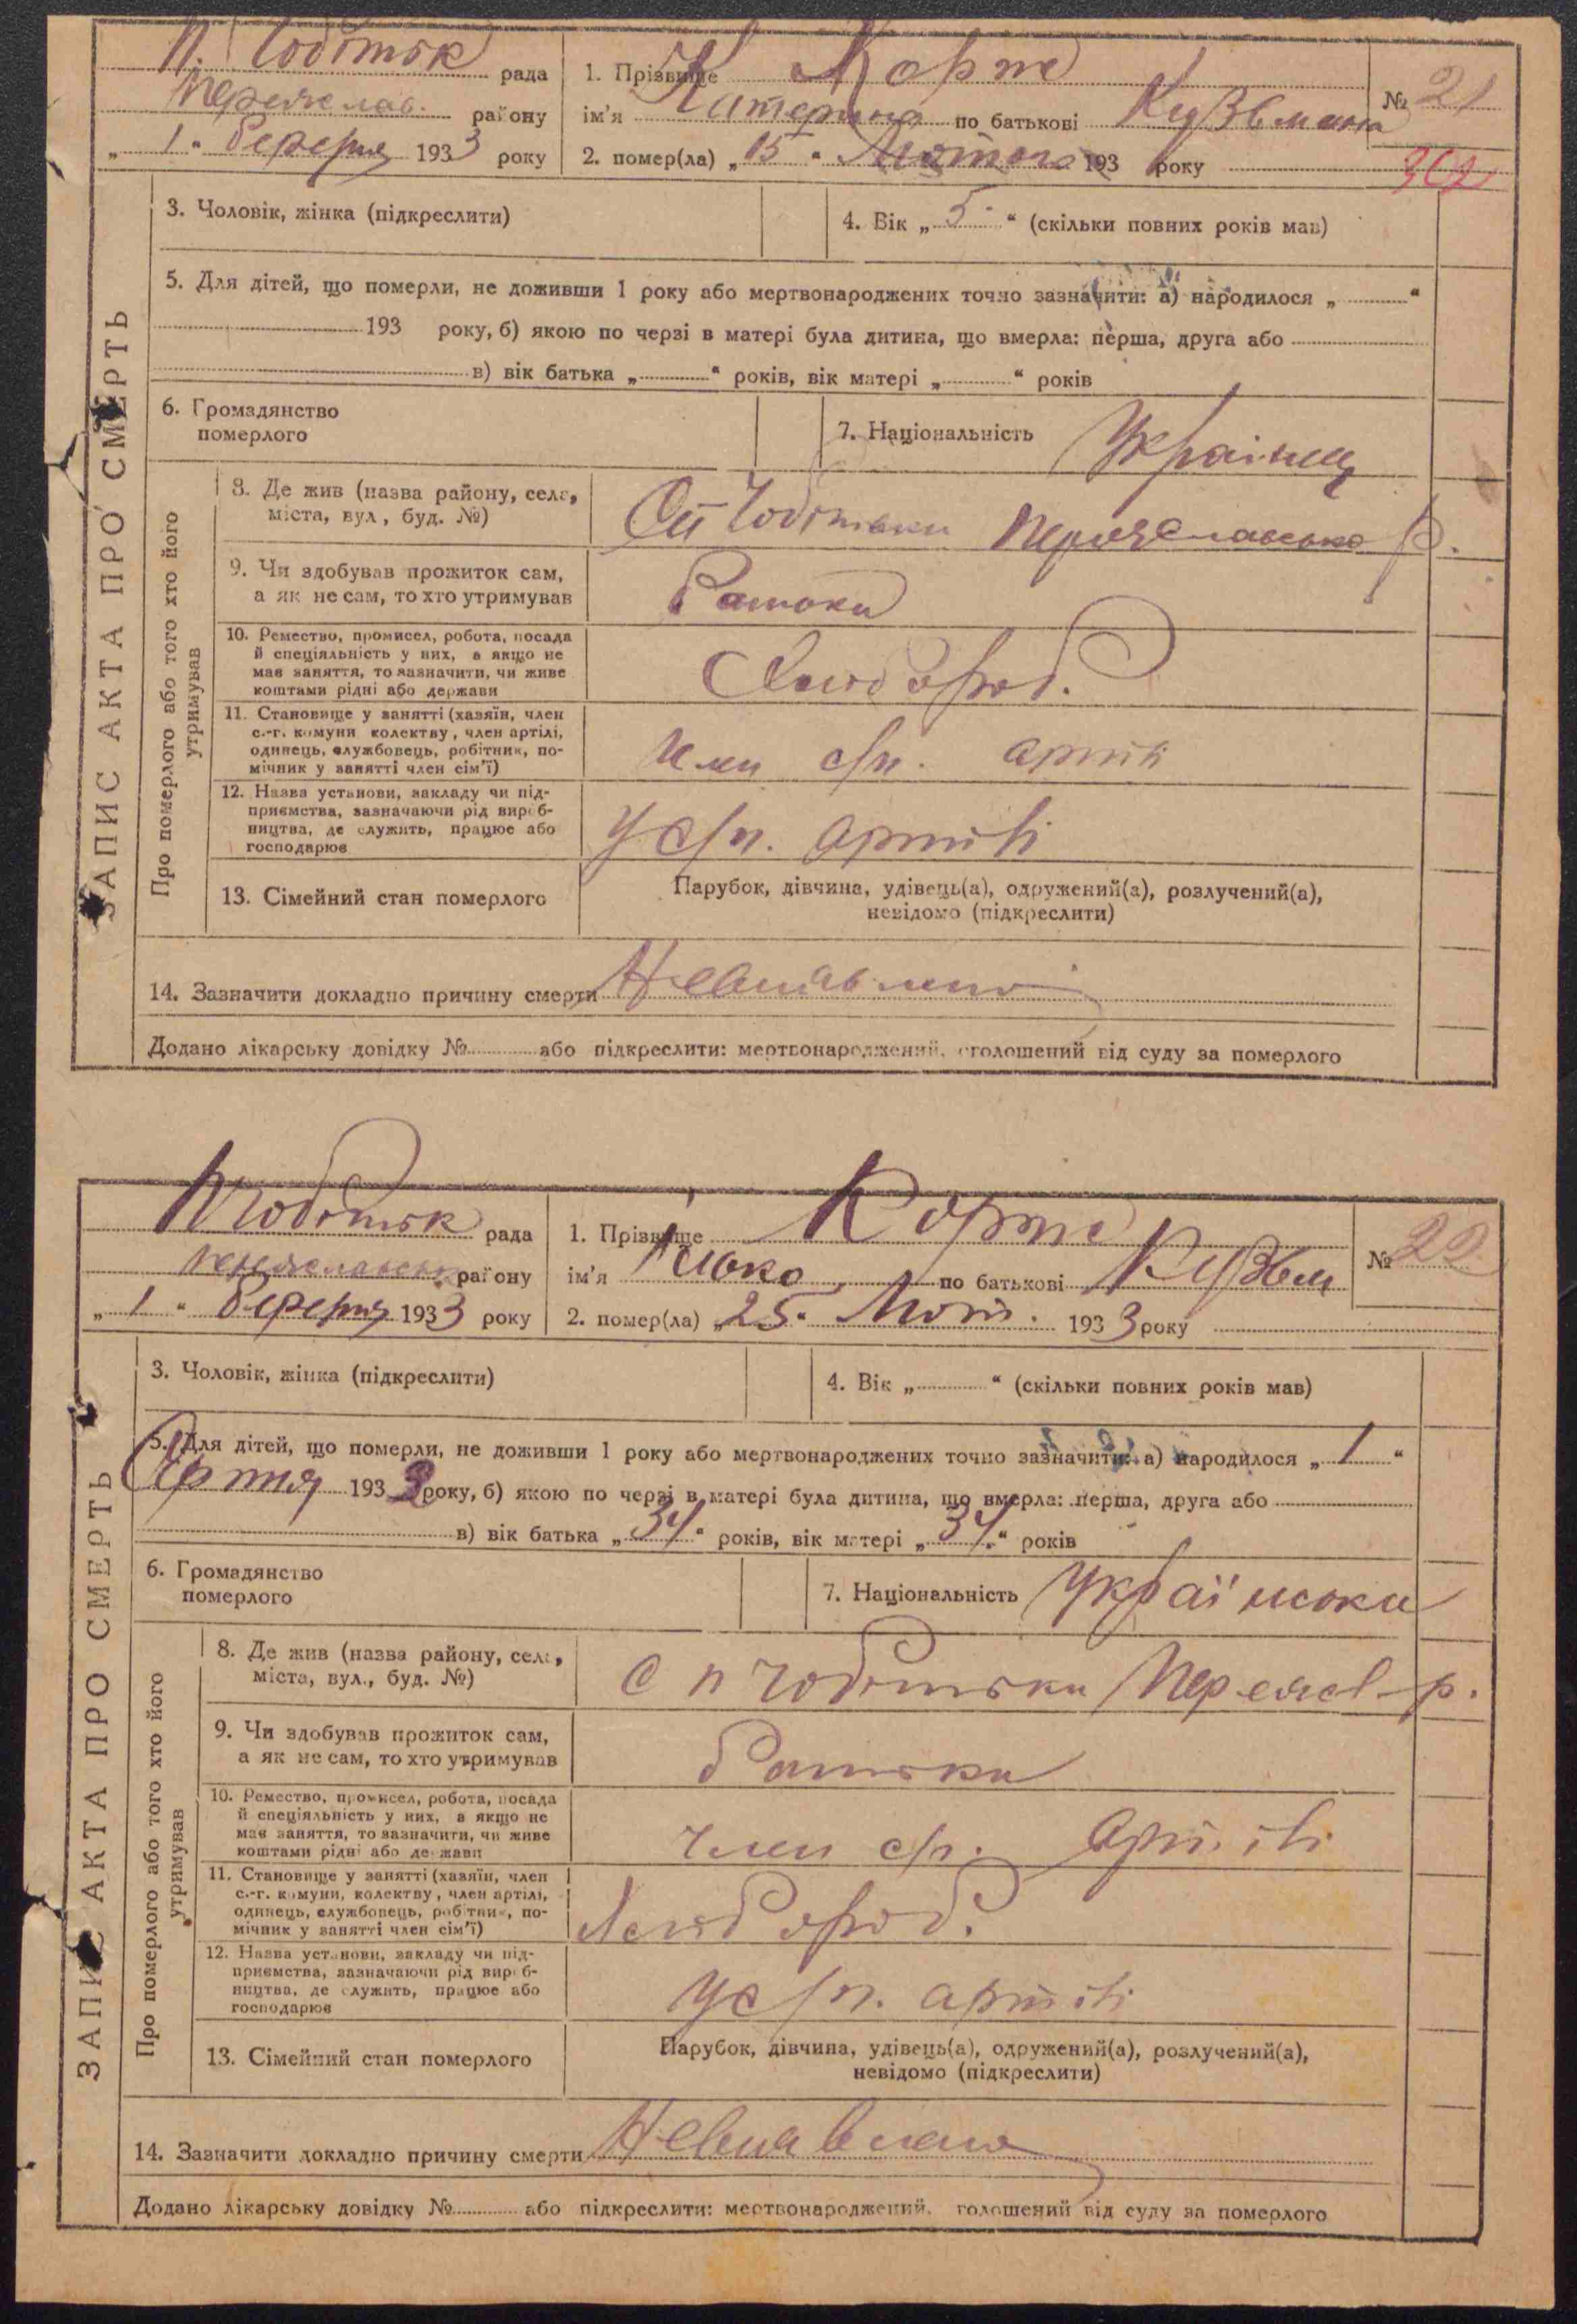 ЗАПИС АКТА ПРО СМЕРТЬ
П. Чобітьк рада
Переяслав. району
„ 1 “ березня 1933 року
1. Прізвище Корж
ім'я Катерина по батькові Кузьмина
№ 21
2. помер(ла) „ 15 “ Лютого 193 року
362
3. Чоловік, жінка (підкреслити)
4. Вік „ 5 “ (скільки повних років мав)
5. Для дітей, що померли, не доживши 1 року або мертвонароджених точно зазначити: а) народилося „ “
193 року, б) якою по черзі в матері була дитина, що вмерла: перша, друга або
в) вік батька „ “ років, вік матері „ “ років
6. Громадянство
померлого
7. Національність Українец
Про померлого або того хто його
утримував
8. Де жив (назва району, села,
міста, вул., буд. №)
Чобітьки Переяславсько р.
9. Чи здобував прожиток сам,
а як не сам, то хто утримував
Батьки
10. Ремество, промисел, робота, посада
й спеціяльність у них, а якщо не
мав заняття, то зазначити, чи живе
коштами рідні або держави
11. Становище у занятті (хазяїн, член
с.-г. комуни колектву, член артілі,
одинець, службовець, робітник, по-
мічник у занятті член сім'ї)
член с/г. артіл
12. Назва установи, закладу чи під-
приємства, зазначаючи рід вироб-
ництва, де служить, працює або
господарює
У с/г. артілі
13. Сімейний стан померлого
Парубок, дівчина, удівець(а), одружений(а), розлучений(а),
невідомо (підкреслити)
14. Зазначити докладно причину смерти
Додано лікарську довідку № або підкреслити: мертвонароджений, оголошений від суду за померлого
ЗАПИС АКТА ПРО СМЕРТЬ
П Чобітьк рада
Переяславськ району
„ 1 “ березня 1933 року
1. Прізвище Корж
ім'я по батькові Кузьм
№ 22
2. помер(ла) „ 25 “ Лют. 1933 року
3. Чоловік, жінка (підкреслити)
4. Вік „ “ (скільки повних років мав)
5. Для дітей, що померли, не доживши 1 року або мертвонароджених точно зазначити: а) народилося „ 1 “
193 року, б) якою по черзі в матері була дитина, що вмерла: перша, друга або
в) вік батька „ 34 “ років, вік матері „ 34 “ років
6. Громадянство
померлого
7. Національність Українська
Про померлого або того хто його
утримував
8. Де жив (назва району, села,
міста, вул., буд. №)
С П Чобітьки Переясл р.
9. Чи здобував прожиток сам,
а як не сам, то хто утримував
батьки
10. Ремество, промисел, робота, посада
й спеціяльність у них, а якщо не
мав заняття, то зазначити, чи живе
коштами рідні або держави
член с/г. артілі
11. Становище у занятті (хазяїн, член
с.-г. комуни, колектву, член артілі,
одинець, службовець, робітник, по-
мічник у занятті член сім'ї)
12. Назва установи, закладу чи під-
приємства, зазначаючи рід вироб-
ництва, де служить, працює або
господарює
У с/г. артілі
13. Сімейний стан померлого
Парубок, дівчина, удівець(а), одружений(а), розлучений(а),
невідомо (підкреслити)
14. Зазначити докладно причину смерти
Додано лікарську довідку № або підкреслити: мертвонароджений, голошений від суду за померлого